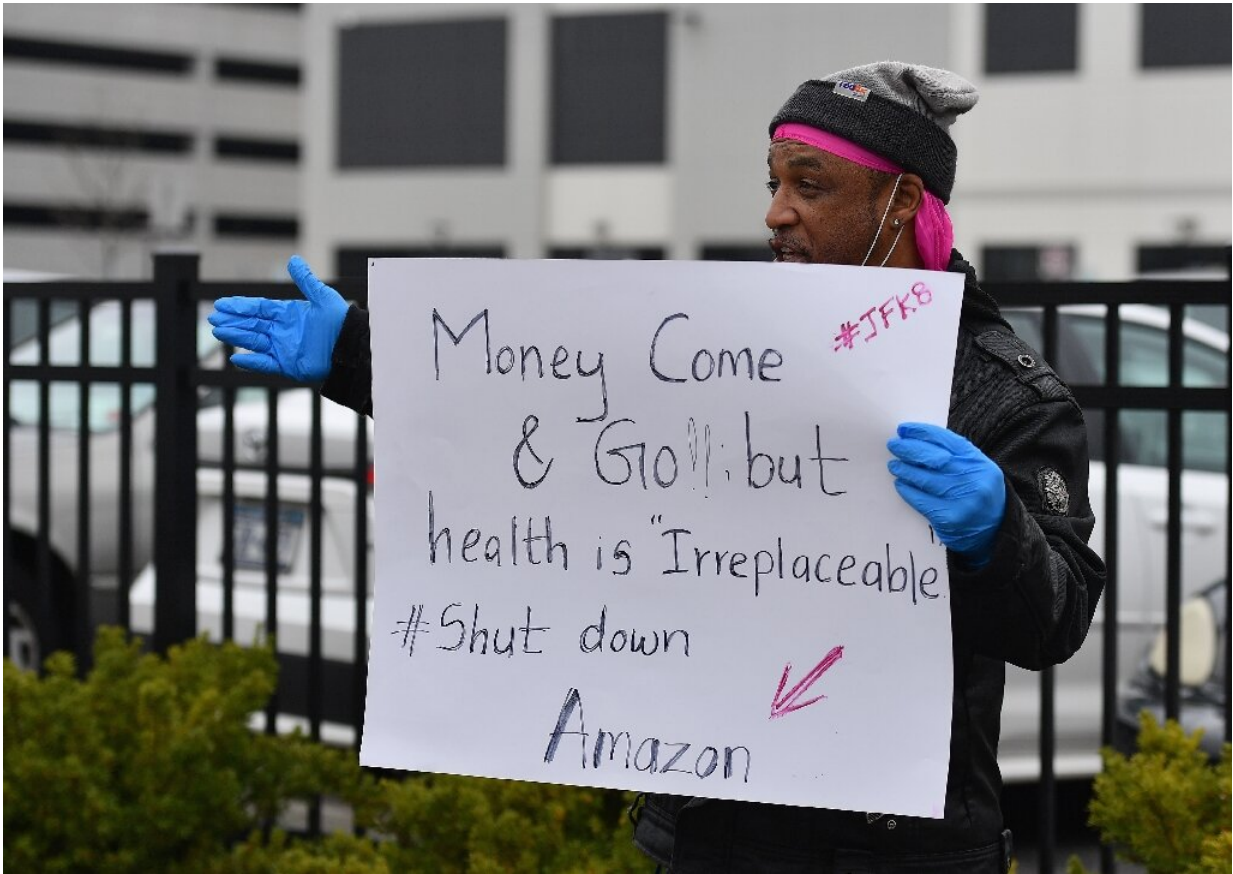 FedEx
#JFK8
Money Come
& Go!!! but
health is "Irreplaceable"
#Shut down
Amazon